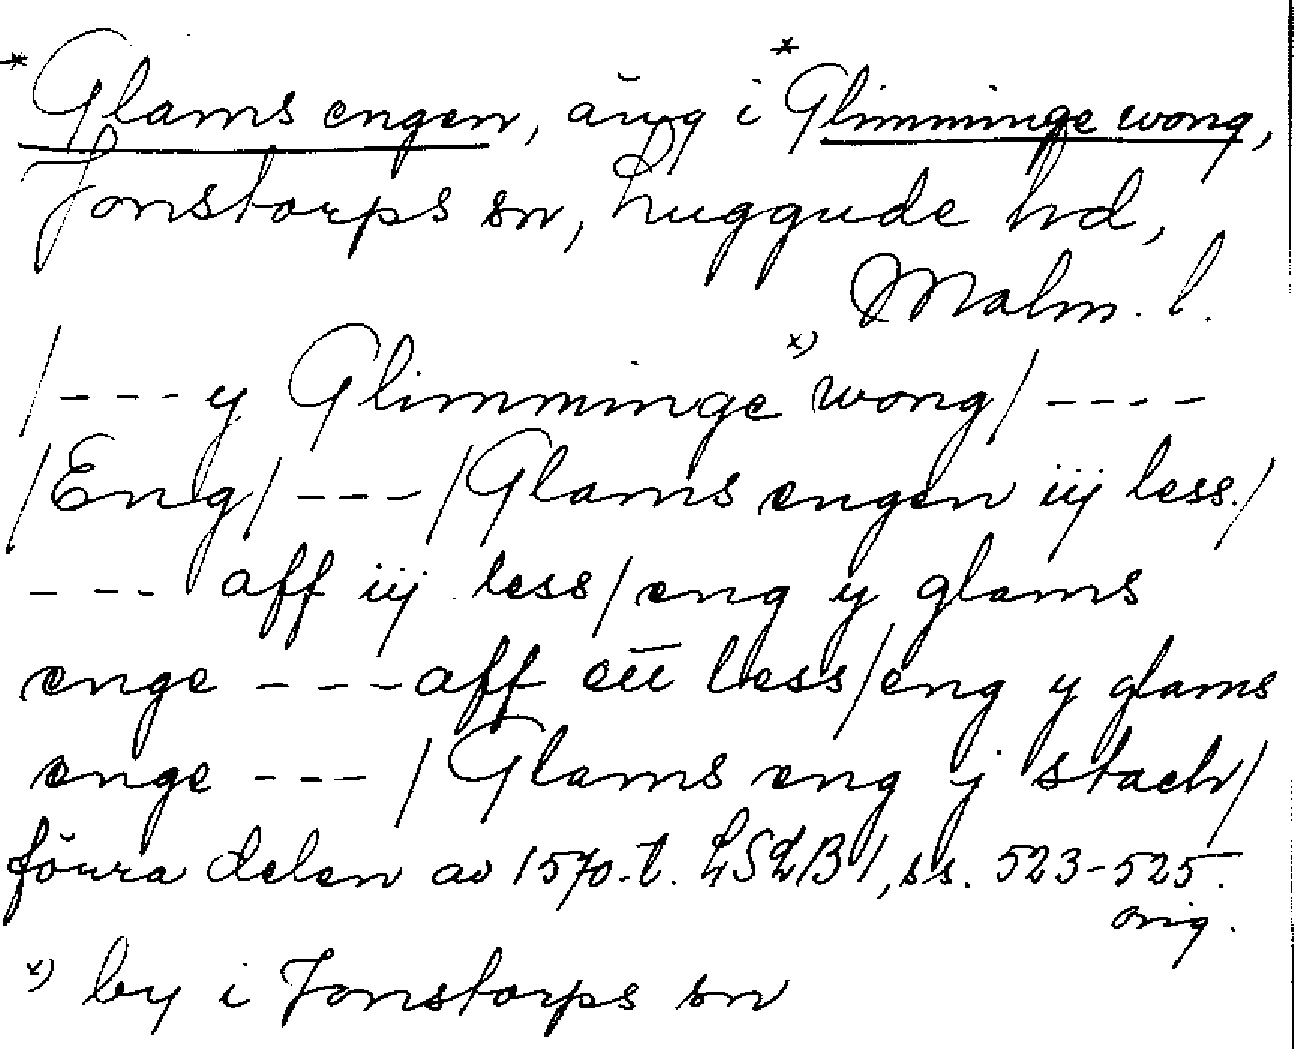 * Glams engen, äng i * Glimminge wong,
Jonstorps sn, Luggude hd,
Malm. l.
/ - - - y Glimminge x) wong / - - - -
/ Eng / - - - / Glams engen iij less. /
- - - aff iij less / eng y glams
enge - - - aff ett less / eng y glams
enge - - - / Glams eng j stack /
förra delen av 1570-t. LSLB 1, ss. 523-525.
orig.
x) by i Jonstorps sn